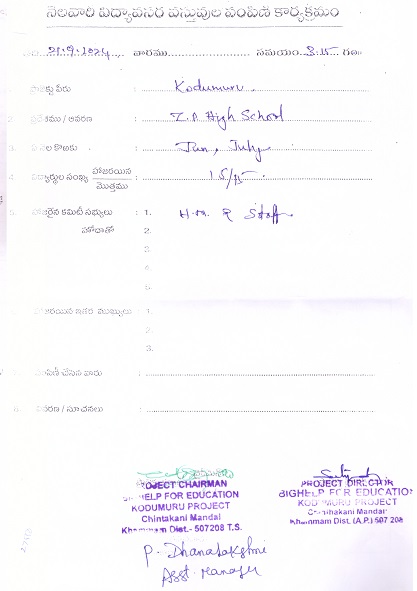 నెలవారి విద్యావసర వస్తువుల పంపిణి కార్యక్రమం
21.9.2024, వారము సమయం 3.15 గం॥
పేరు : Kodumuru.
2. / ఆవరణ : Z.P. High School
3. నెల కొఱకు : Jan, July
4. విద్యార్థుల సంఖ్య హాజరయిన మొత్తము : 15/15
5. హాజరైన కమిటీ సభ్యులు : 1. H.M. & Staff
హోదాతో 2.
3
4
5.
హాజరయిన ఇతర ముఖ్యులు 1.
2.
3.
పంపిణీ చేసిన వారు :
/ సూచనలు :
PROJECT CHAIRMAN
BIGHELP FOR EDUCATION
KODUMURU PROJECT
Chintakani Mandal
Khammam Dist.- 507208 T.S.
PROJECT DIRECTOR
BIGHELP FOR EDUCATION
KODUMURU PROJECT
Chintakani Mandal
Khammam Dist. (A.P.) 507 208
P. Dhanalakshmi
Asst. Manager